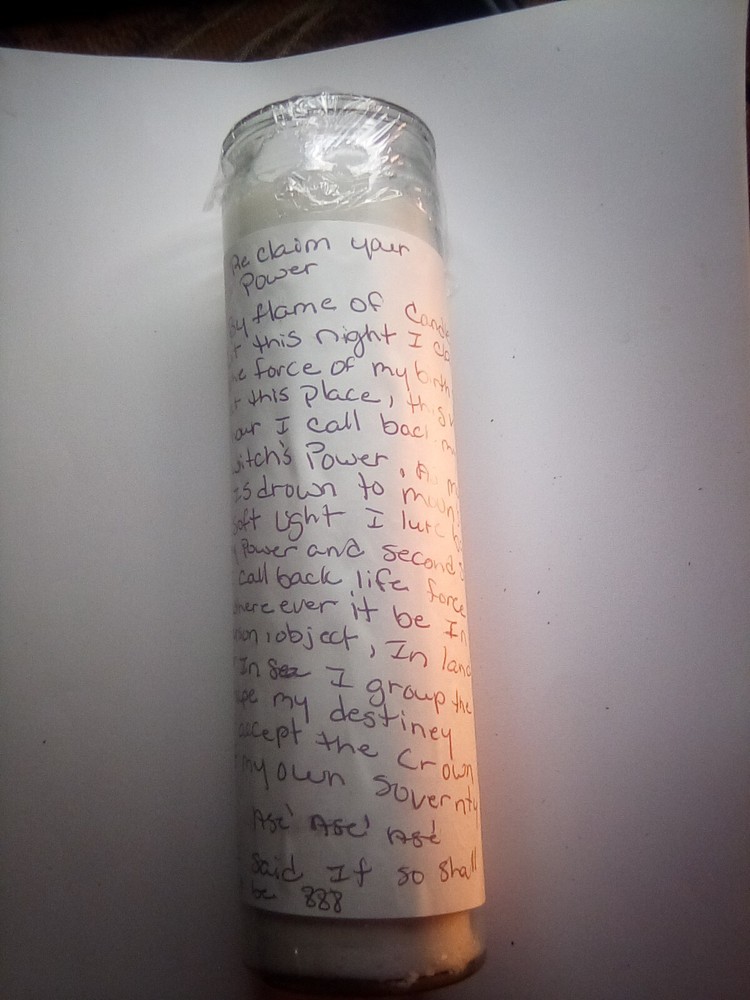 Reclaim your
Power
By flame of Cand
this night I
force of my birth
this place, this
I call back
witch's Power. As my
is drown to
soft light I lure
Power and second
call back life force
where ever it be In
object, In land
In Sea I group the
my destiney
accept the Crown
my own Sovernty
Asé Asé Asé
Said If so shall
be 888